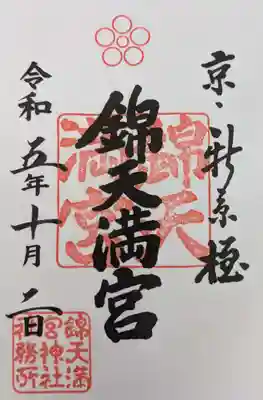 京・新京極
錦天満宮
錦天満宮
令和五年十月二日
錦天満宮神社務所